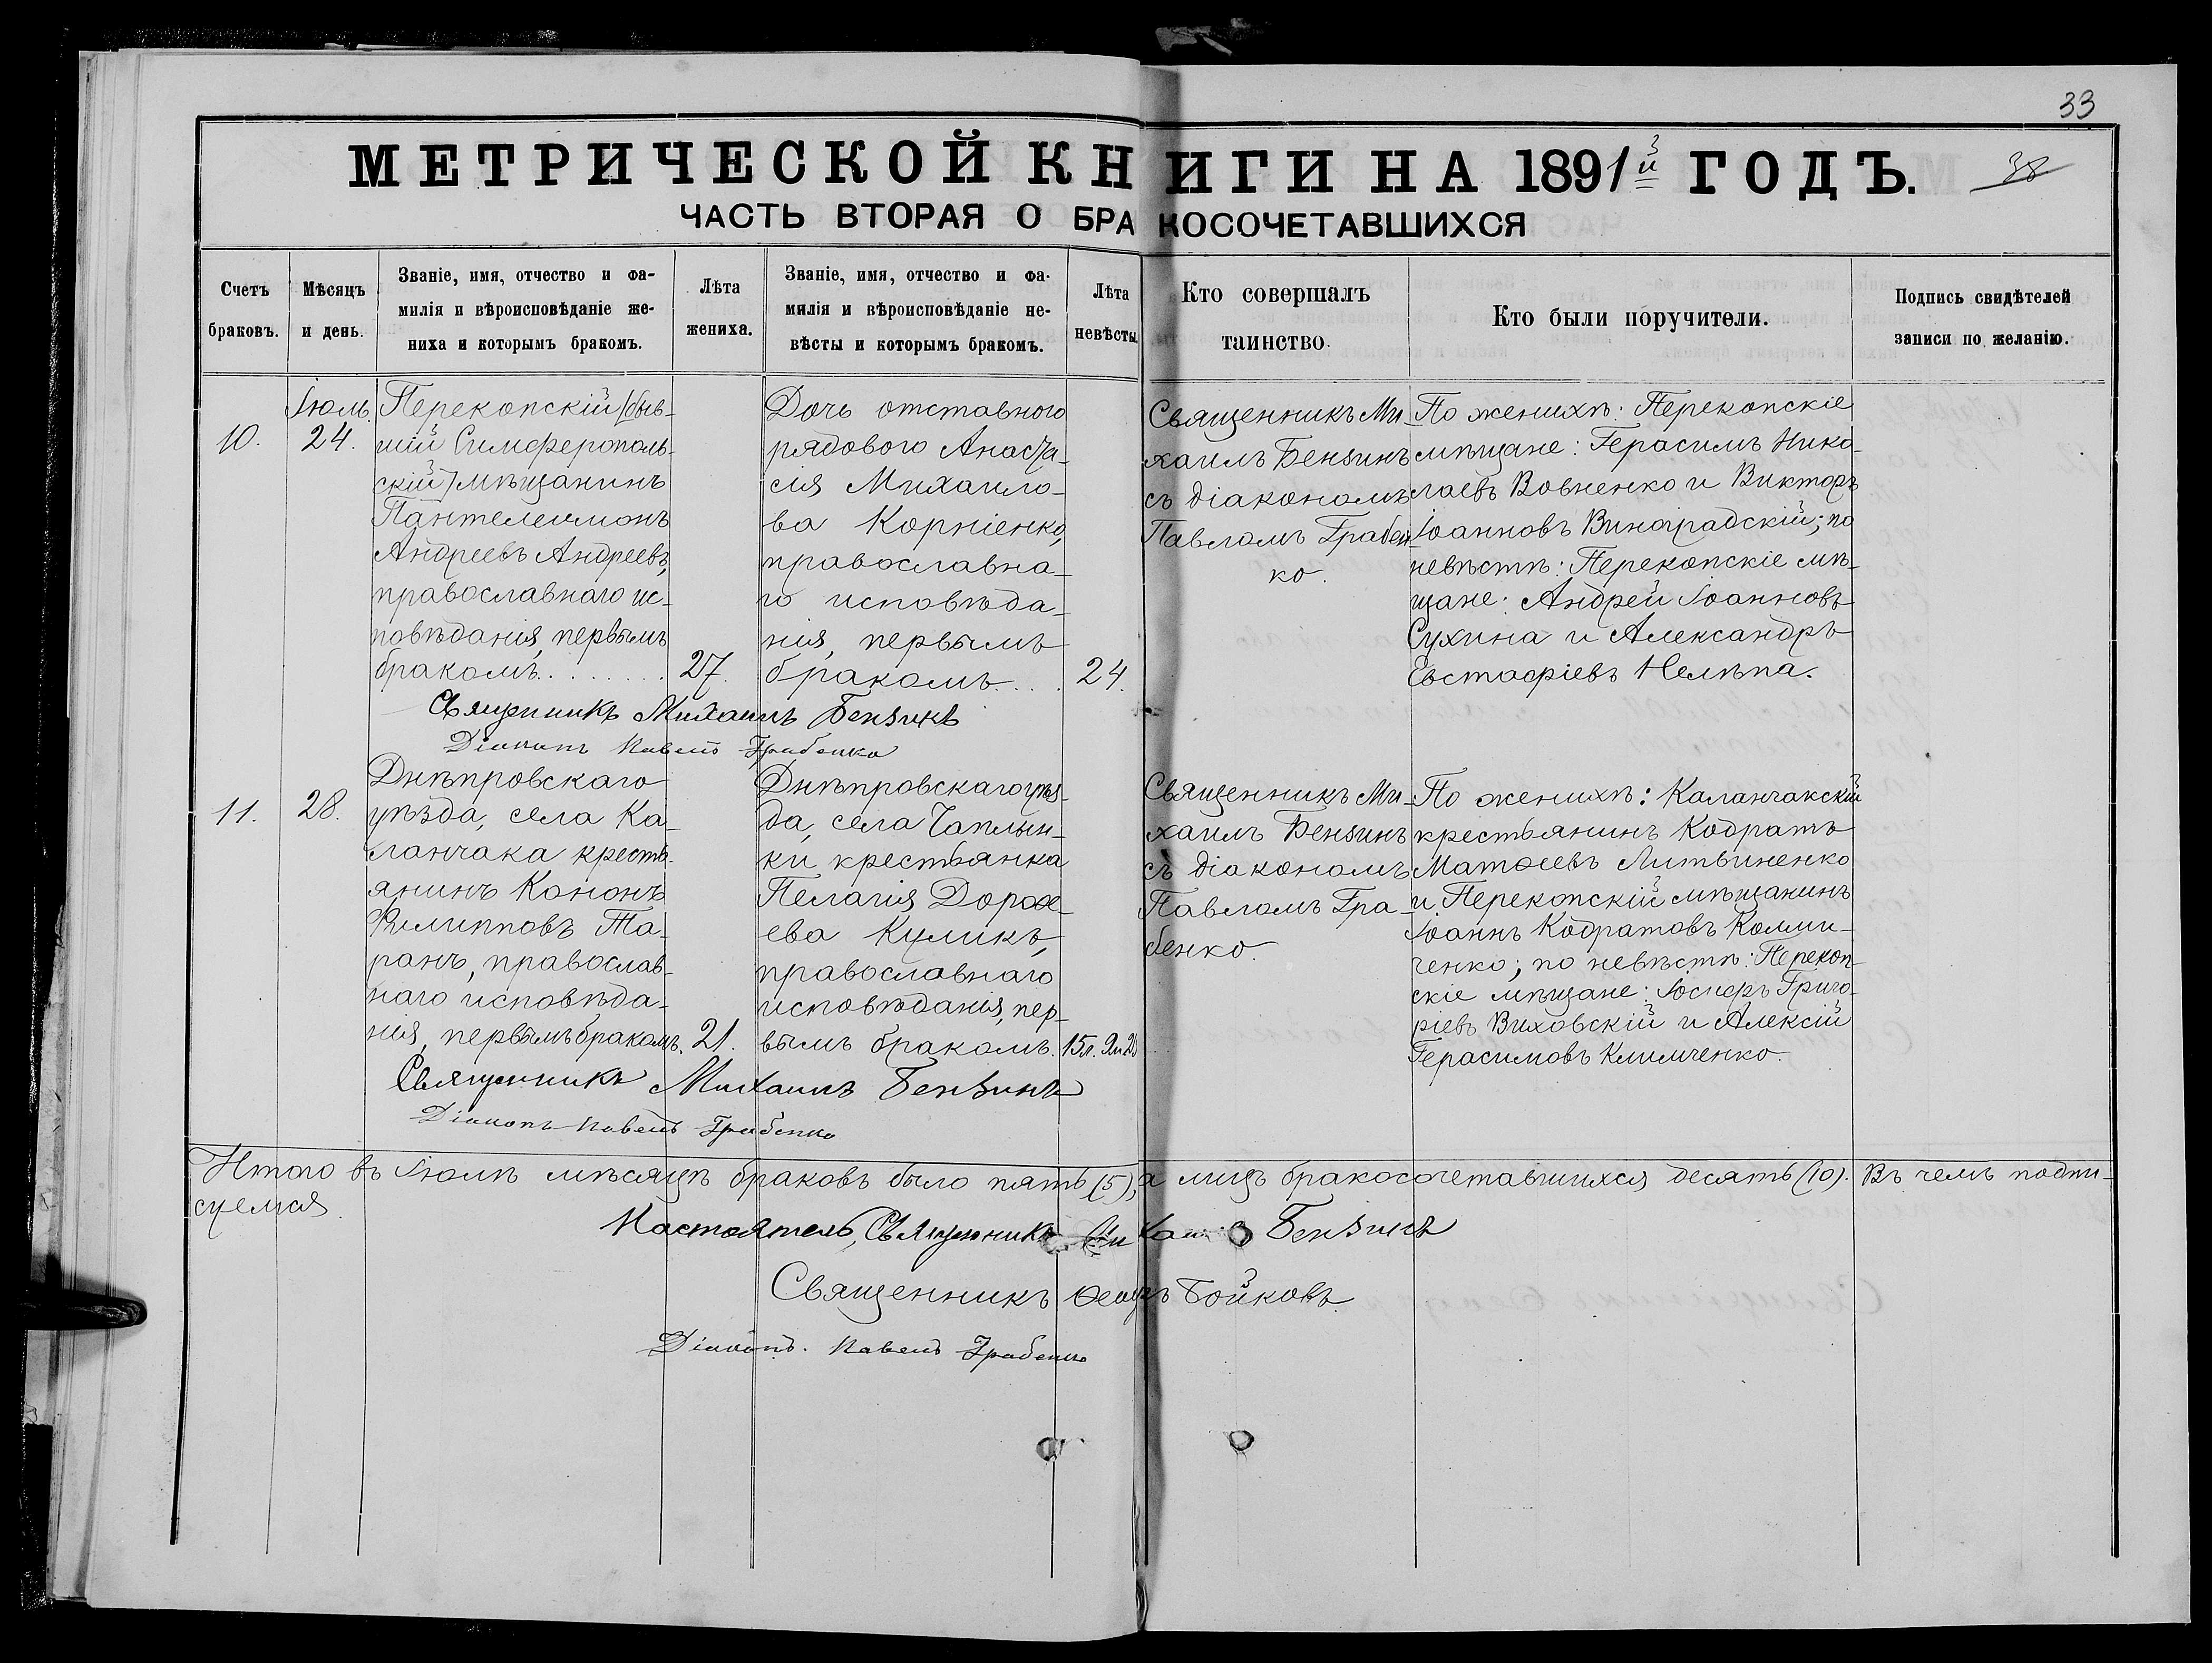 33
МЕТРИЧЕСКОЙ КНИГИ НА 1891й ГОДЪ.
38
ЧАСТЬ ВТОРАЯ О БРАКОСОЧЕТАВШИХСЯ
Счетъ
браковъ.
Мѣсяцъ
и день.
Званіе, имя, отчество и фа-
милія и вѣроисповѣданіе же-
ниха и которымъ бракомъ.
Лѣта
жениха.
Званіе, имя, отчество и фа-
милія и вѣроисповѣданіе не-
вѣсты и которымъ бракомъ.
Лѣта
невѣсты.
Кто совершалъ
таинство.
Кто были поручители.
Подпись свидѣтелей
записи по желанію.
10.
Іюль
24.
Перекопскій /быв-
шій Симферополь-
скій/ мѣщанинъ
Пантелеимонъ
Андреевъ Андреевъ,
православнаго ис-
повѣданія, первымъ
бракомъ
27.
Дочь отставного
рядового Анаста-
сія Михаило-
ва Корніенко,
православна-
го исповѣда-
нія, первымъ
бракомъ
24.
Священникъ Ми-
хаилъ Бензинъ
съ діакономъ
Павломъ Грабен-
ко.
По женихѣ: Перекопскіе
мѣщане: Герасимъ Нико-
лаевъ Вовненко и Викторъ
Іоанновъ Виноградскій; по
невѣстѣ: Перекопскіе мѣ-
щане: Андрей Іоанновъ
Сухина и Александръ
Евстафіевъ Нелѣпа.
Священникъ Михаилъ Бензинъ
Діаконъ Павелъ Грабенко
11.
28.
Днѣпровскаго
уѣзда, села Ка-
ланчака кресть-
янинъ Кононъ
Филипповъ Та-
ранъ, православ-
наго исповѣда-
нія, первымъ бракомъ.
21.
Днѣпровскаго уѣз-
да, села Чаплын-
ки крестьянка
Пелагія Дороѳе-
ева Куликъ,
православнаго
исповѣданія, пер-
вымъ бракомъ.
15л.
Священникъ Ми-
хаилъ Бензинъ
съ діакономъ
Павломъ Гра-
бенко.
По женихѣ: Каланчакскій
крестьянинъ Кодратъ
Матѳеевъ Литвиненко
и Перекопскій мѣщанинъ
Іоаннъ Кодратовъ Колми-
ченко; по невѣстѣ: Перекоп-
скіе мѣщане: Іосифъ Григо-
ріевъ Виховскій и Алексій
Герасимовъ Климченко.
Священникъ Михаилъ Бензинъ
Діаконъ Павелъ Грабенко
Итого въ Іюлѣ мѣсяцѣ браковъ было пять (5), а лицъ бракосочетавшихся десять (10). Въ чемъ подпи-
суемся.
Настоятель, Священникъ Михаилъ Бензинъ
Священникъ Бойковъ.
Діаконъ Павелъ Грабенко